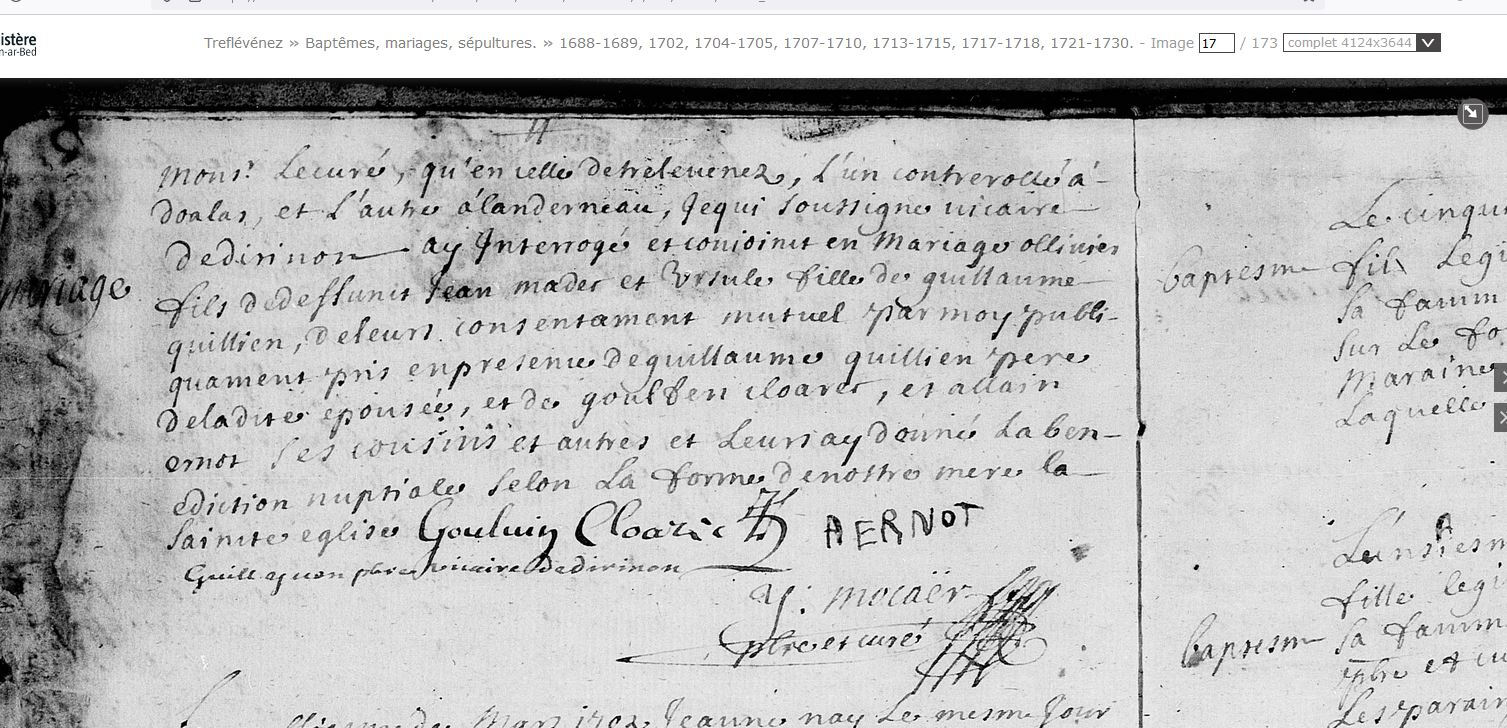 istère
n-ar-Bed
Treflévénez » Baptêmes, mariages, sépultures. » 1688-1689, 1702, 1704-1705, 1707-1710, 1713-1715, 1717-1718, 1721-1730. - Image 17 / 173 complet 4124x3644
monsr Lecuré, qu'en celle detrelevenez, L'un controrollé a
doalas, et L'autre a landerneau, Jequi soussigne vicaire
dedirinon ay Interrogé et conjoinct en Mariage ollivier
mariage
fils dedeffunct Jean madec et Ursule fille de guillaume
quillien, deleurs consentament mutuel par moy publi-
quament pris enpresence deguillaume quillien pere
deladite epousée, et de goulven cloarec, et allain
ernot ses cousins et autres et Leurs ay donné La ben-
ediction nuptiale selon La forme denostre mere la
sainte eglise Gouluin Cloarec AERNOT
Guill vicaire dedirinon
Y: mocaër
pbre et curé
Mars 1702 Jeanne nay Le mesme Jour
Le cinqu
baptesme fils Legi
sa famm
sur Le fo
Maraine
Laquelle
fille legi
baptesme sa famm
pbre et cu
Les parain